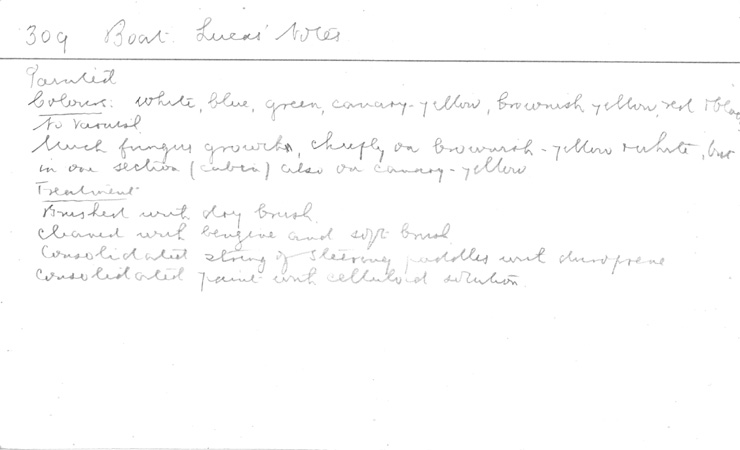 309 Boat. Lucas' Notes
Painted
Colours: white, blue, green, canary-yellow, brownish yellow, red & black
No varnish
Much fungus growth, chiefly on brownish-yellow & white, but
in one section (cabin) also on canary-yellow
Treatment
Brushed with dry brush.
Cleaned with benzine and soft brush
Consolidated string of steering paddles with duroprene
Consolidated paint with celluloid solution.